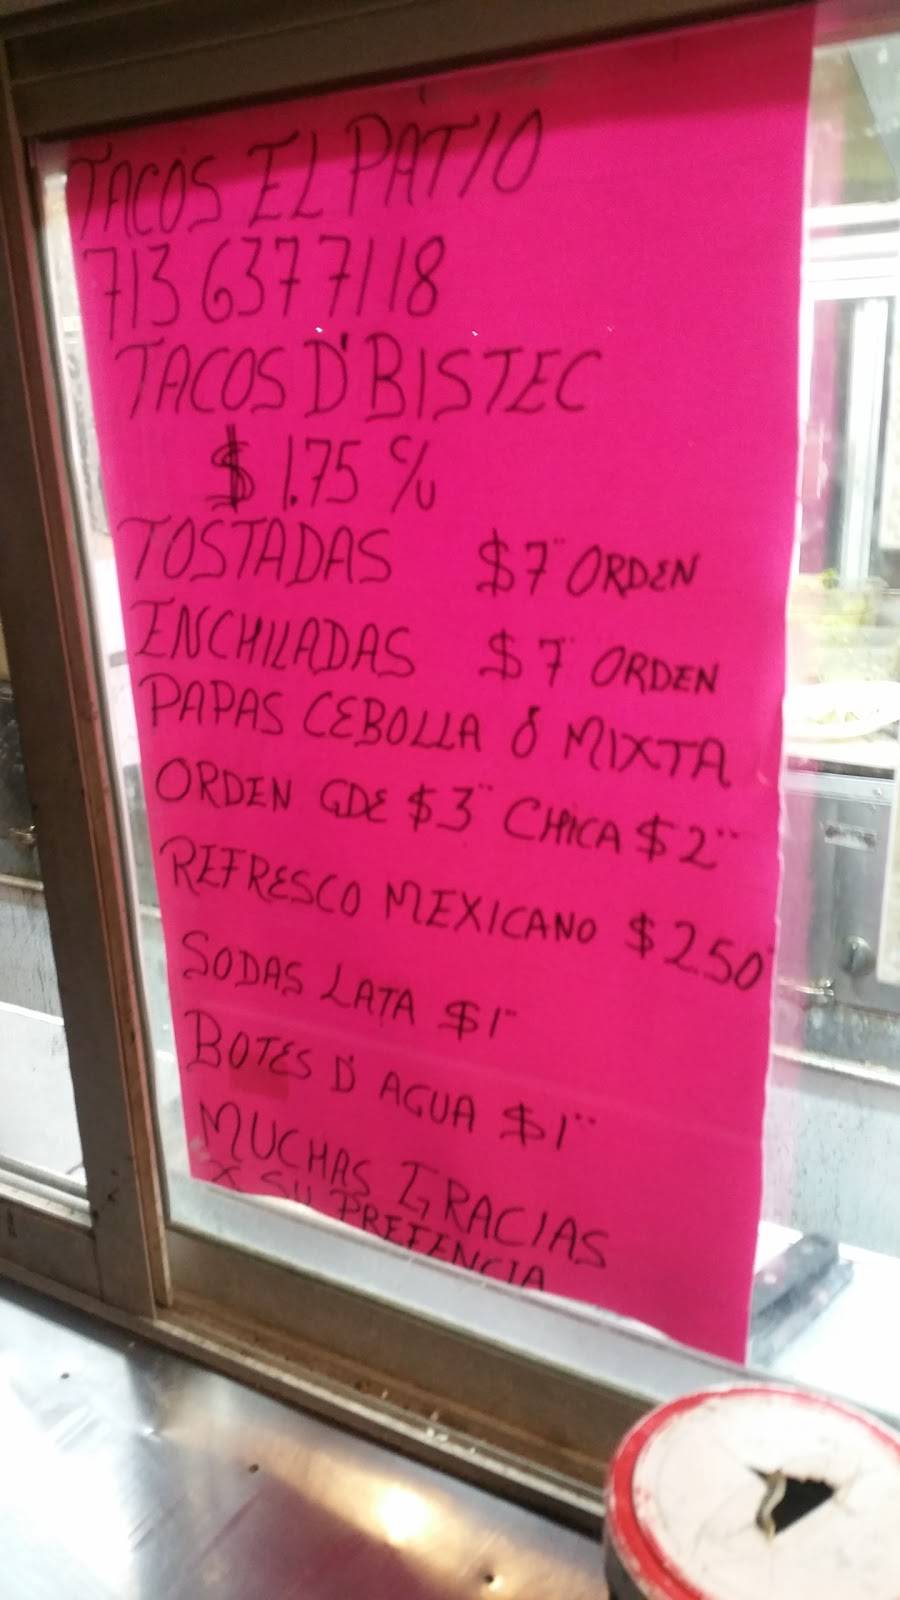 TACOS EL PATIO
713 637 7118
TACOS D'BISTEC
$ 1.75 c/u
TOSTADAS $7¨ ORDEN
ENCHILADAS $7¨ ORDEN
PAPAS CEBOLLA Ó MIXTA
ORDEN GDE $3¨ CHICA $2¨
REFRESCO MEXICANO $2.50
SODAS LATA $1¨
BOTES D' AGUA $1¨
MUCHAS GRACIAS
X SU PREFENCIA